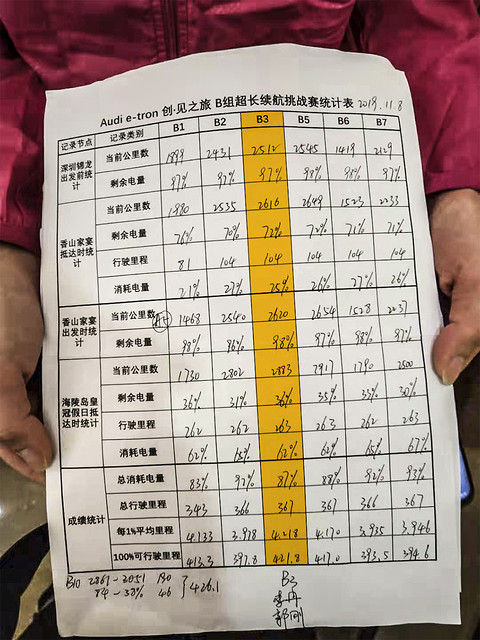 Audi e-tron 创·见之旅 B组超长续航挑战赛统计表 2019.11.8
记录节点 记录类别 B1 B2 B3 B5 B6 B7
深圳锦龙出发前统计 当前公里数 1899 2431 2512 2545 1419 2129
剩余电量 97% 97% 97% 98% 98% 97%
香山家宴抵达时统计 当前公里数 1980 2535 2616 2649 1523 2233
剩余电量 76% 70% 72% 72% 71% 71%
行驶里程 81 104 104 104 104 104
消耗电量 21% 27% 25% 26% 27% 26%
香山家宴出发时统计 当前公里数 1468 2540 2620 2654 1528 2237
剩余电量 98% 96% 98% 97% 98% 97%
海陵岛皇冠假日抵达时统计 当前公里数 1730 2802 2883 2917 1790 2500
剩余电量 36% 31% 36% 35% 33% 30%
行驶里程 262 262 263 263 262 263
消耗电量 62% 65% 62% 62% 65% 67%
成绩统计 总消耗电量 83% 92% 87% 88% 92% 93%
总行驶里程 343 366 367 367 366 367
每1%平均里程 4.133 3.978 4.218 4.170 3.935 3.946
100%可行驶里程 413.3 397.8 421.8 417.0 393.5 394.6
B10 2861-2051 190
84-38% 46 } 426.1
B3